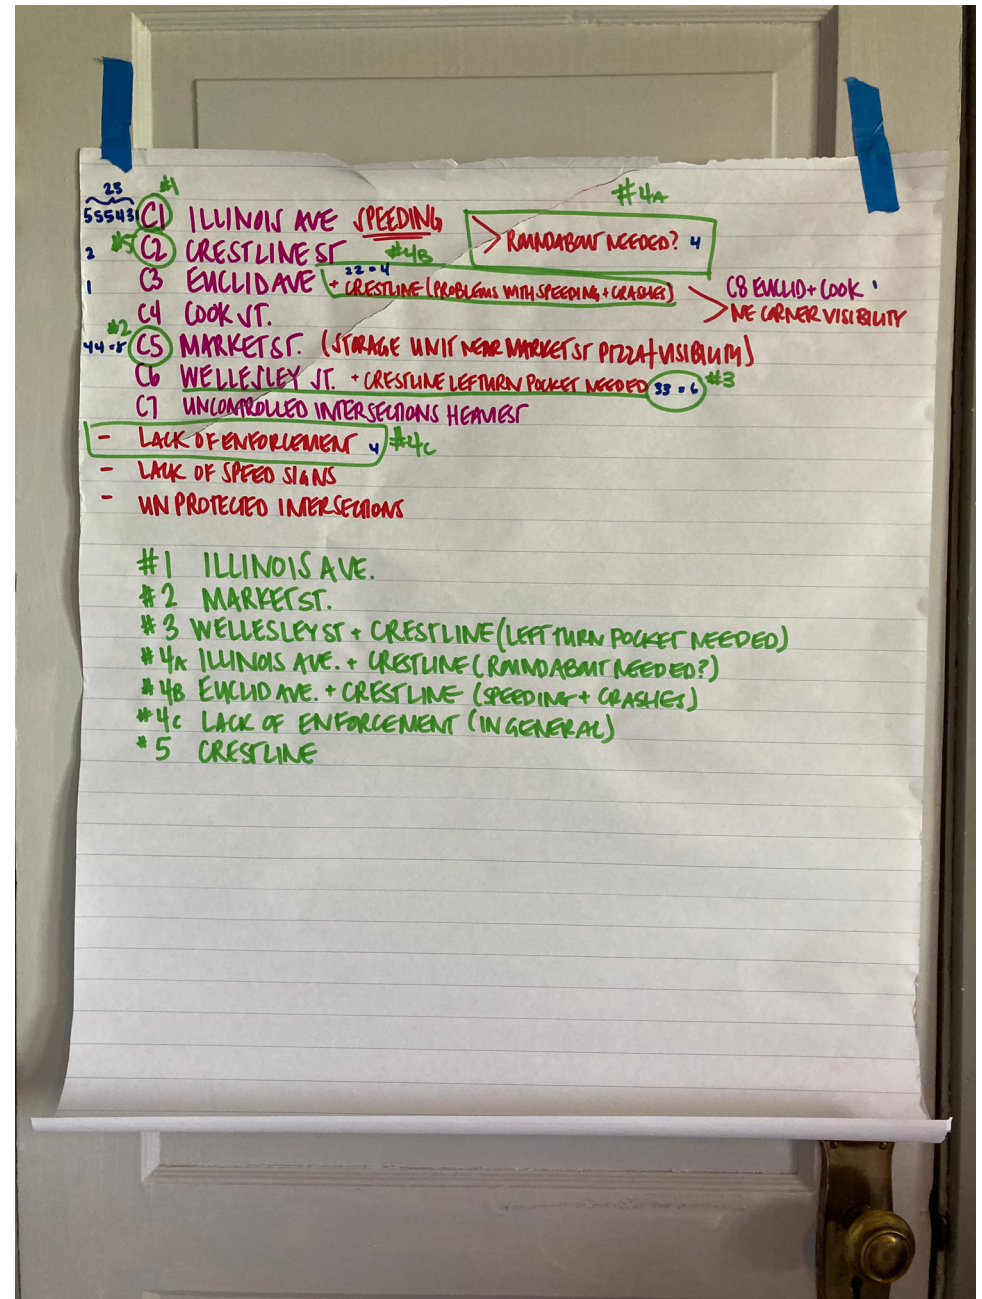 25 #1 #4A
555431 C1 ILLINOIS AVE SPEEDING > ROUNDABOUT NEEDED? 4
2 #5 C2 CRESTLINE ST #4B
22=4
1 C3 EUCLID AVE + CRESTLINE (PROBLEMS WITH SPEEDING + CRASHES) > C8 EUCLID + COOK
C4 COOK ST. NE CORNER VISIBILITY
#2
44=8 C5 MARKET ST. (STORAGE UNIT NEAR MARKET ST PIZZA/VISIBILITY)
C6 WELLESLEY ST. + CRESTLINE LEFT TURN POCKET NEEDED 33=6 #3
C7 UNCONTROLLED INTERSECTIONS HEAVIEST
- LACK OF ENFORCEMENT 4 #4C
- LACK OF SPEED SIGNS
- UNPROTECTED INTERSECTIONS
#1 ILLINOIS AVE.
#2 MARKET ST.
#3 WELLESLEY ST + CRESTLINE (LEFT TURN POCKET NEEDED)
#4A ILLINOIS AVE. + CRESTLINE (ROUNDABOUT NEEDED?)
#4B EUCLID AVE. + CRESTLINE (SPEEDING + CRASHES)
#4C LACK OF ENFORCEMENT (IN GENERAL)
#5 CRESTLINE